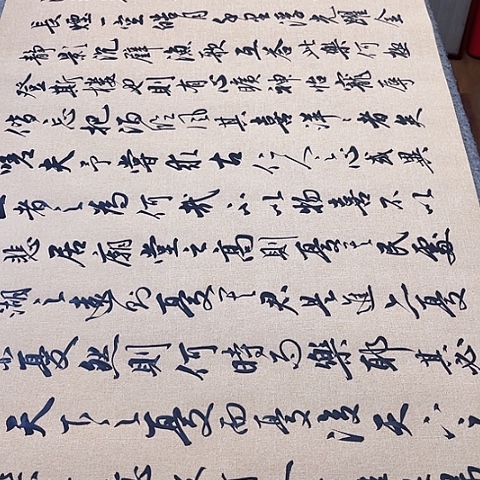 長煙一空皓月千里浮光耀金
静影沉璧漁歌互答此樂何極
登斯樓也則有心曠神怡寵辱
偕忘把酒臨風其喜洋洋者矣
嗟夫予嘗求古仁人之心或異
二者之為何哉不以物喜不以
悲居廟堂之高則憂其民處
湖之遠則憂其君是進亦憂
亦憂然則何時而樂耶其必
天下之憂而憂後天下之